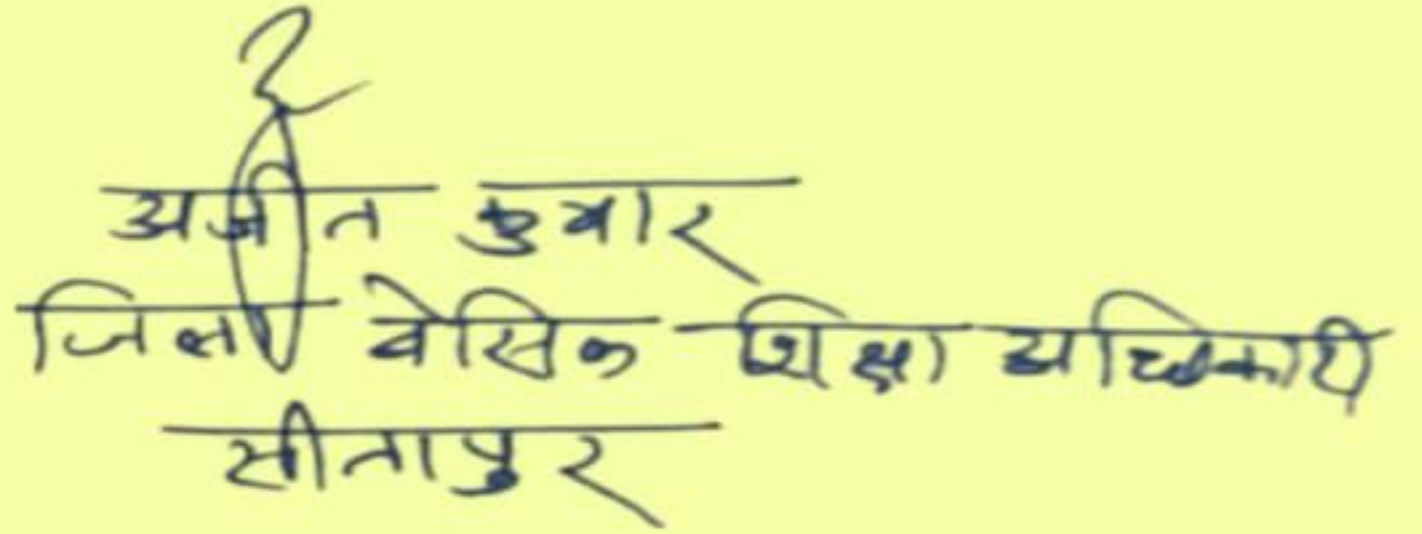 अजीत कुमार
जिला बेसिक शिक्षा अधिकारी
सीतापुर